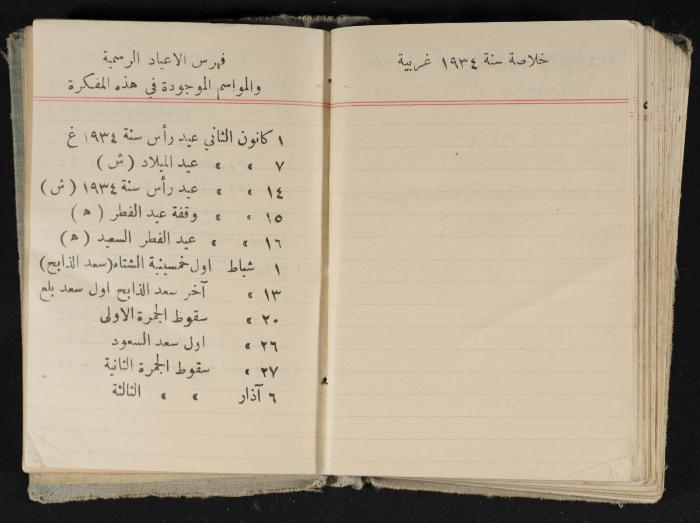 خلاصة سنة ١٩٣٤ غربية
فهرس الاعياد الرسمية
والمواسم الموجودة في هذه المفكرة
١ كانون الثاني عيد رأس سنة ١٩٣٤ غ
٧ » » عيد الميلاد (ش)
١٤ » » عيد رأس سنة ١٩٣٤ (ش)
١٥ » » وقفة عيد الفطر (ه)
١٦ » » عيد الفطر السعيد (ه)
١ شباط اول خمسينية الشتاء (سعد الذابح)
١٣ » آخر سعد الذابح اول سعد بلع
٢٠ » سقوط الجمرة الاولى
٢٦ » اول سعد السعود
٢٧ » سقوط الجمرة الثانية
٦ آذار » » الثالثة